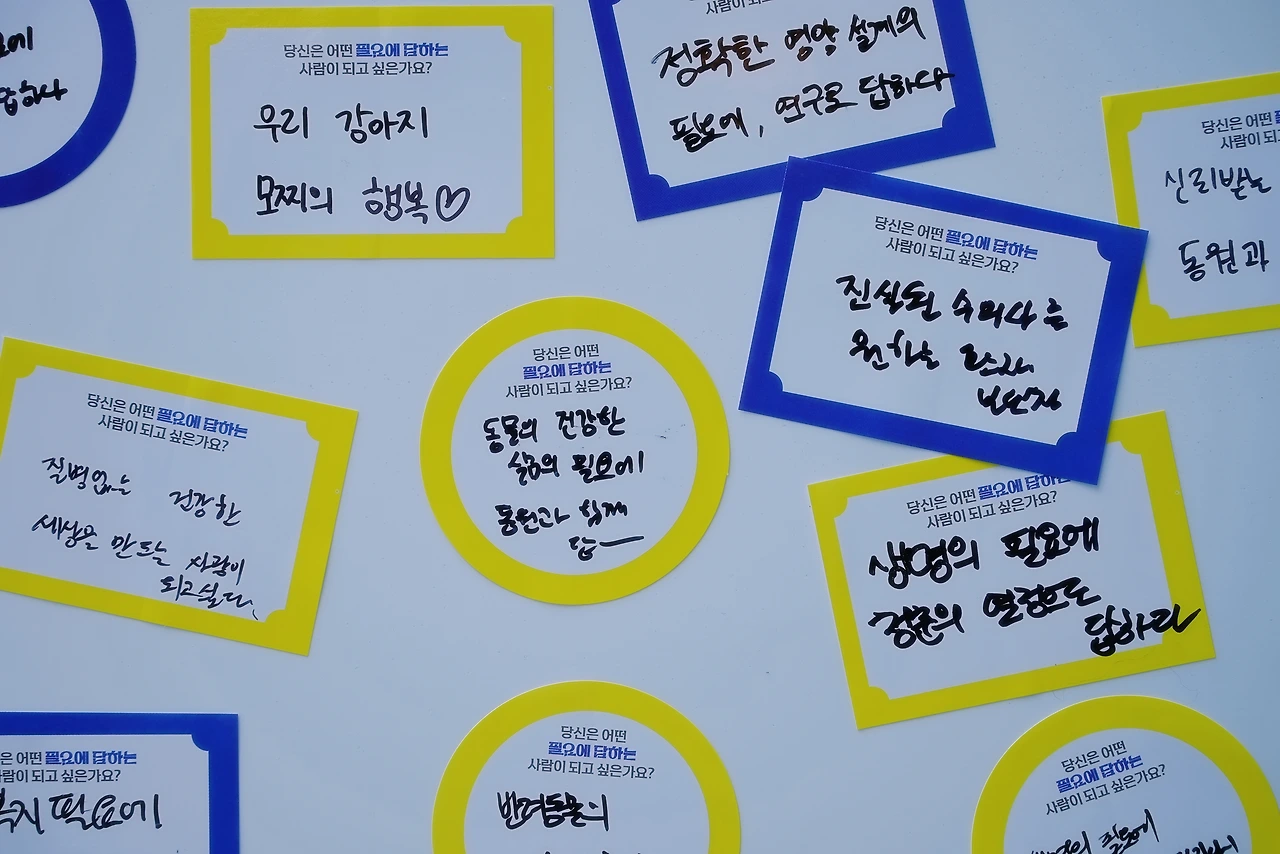 답하다
당신은 어떤 필요에 답하는
사람이 되고 싶은가요?
우리 강아지
모찌의 행복♡
정확한 영양 설계의
필요에, 연구로 답하다
당신은 어떤
사람이
신뢰받는
동원과
당신은 어떤 필요에 답하는
사람이 되고 싶은가요?
진실된
원하는
당신은 어떤 필요에 답하는
사람이 되고 싶은가요?
질병없는 건강한
세상을 만드는 사람이
되고싶다.
당신은 어떤
필요에 답하는
사람이 되고 싶은가요?
동물의 건강한
삶의 필요에
동원과 함께
답
당신은 어떤 필요에 답하는
사람이 되고 싶은가요?
생명의 필요에
열정으로
답하라
은 어떤 필요에 답하는
람이 되고 싶은가요?
복지 필요에
당신은 어떤
필요에 답하는
사람이 되고 싶은가요?
반려동물의
당신은 어떤
필요에 답하는
사람이 되고 싶은가요?
필요에